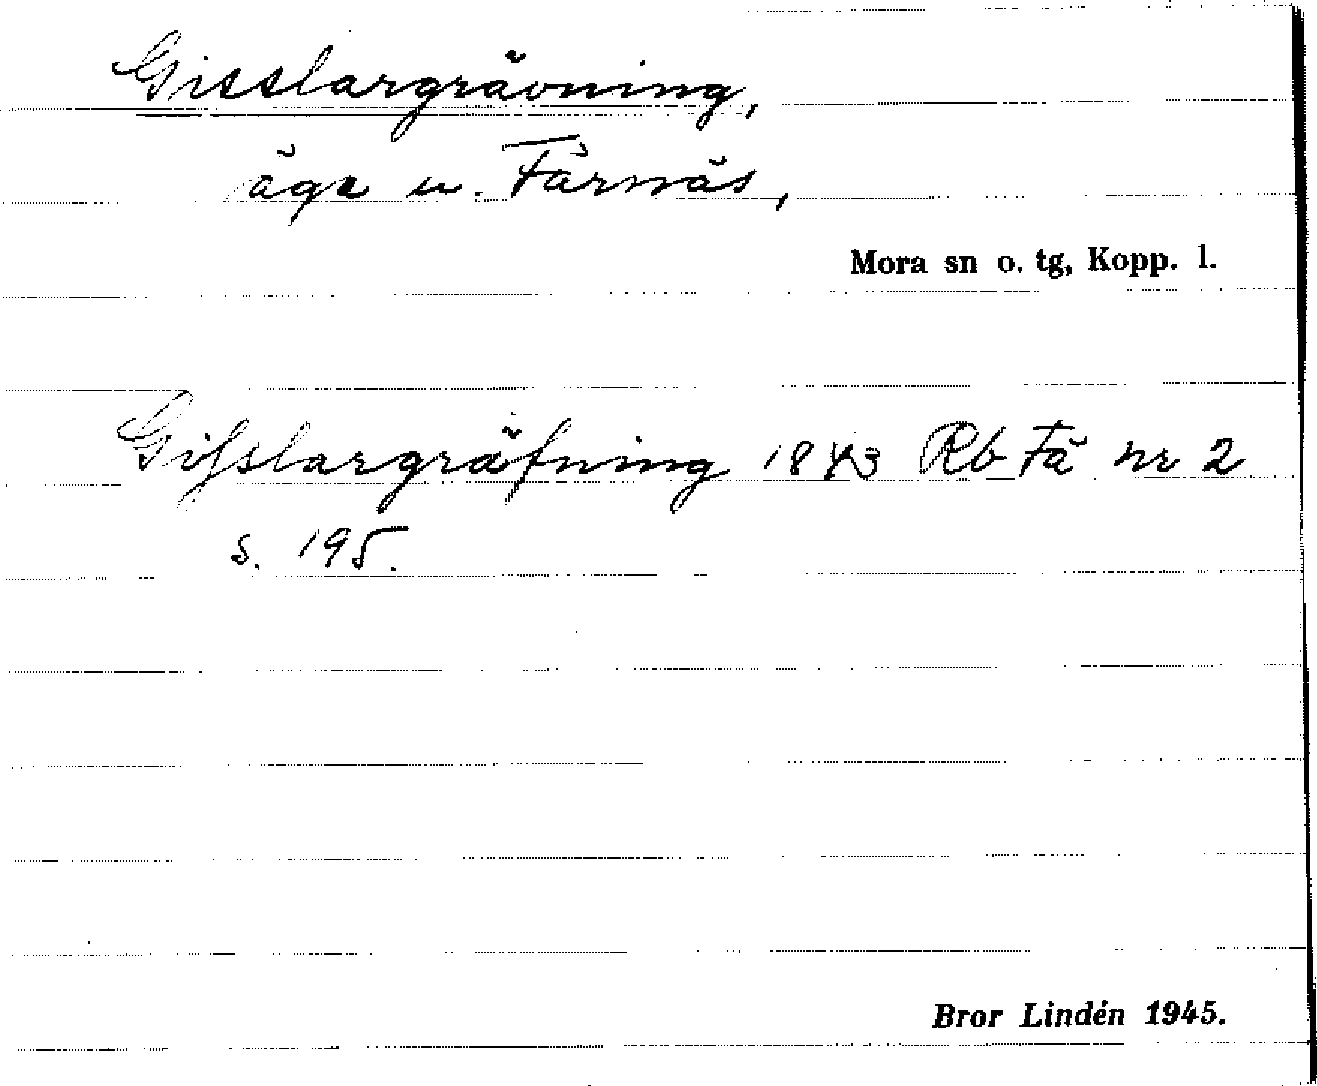 Gisslargrävning,
äga u. Färnäs,
Mora sn o. tg, Kopp. l.
Gisslargräfning 1843 Rb Fä nr 2
s. 195.
Bror Lindén 1945.